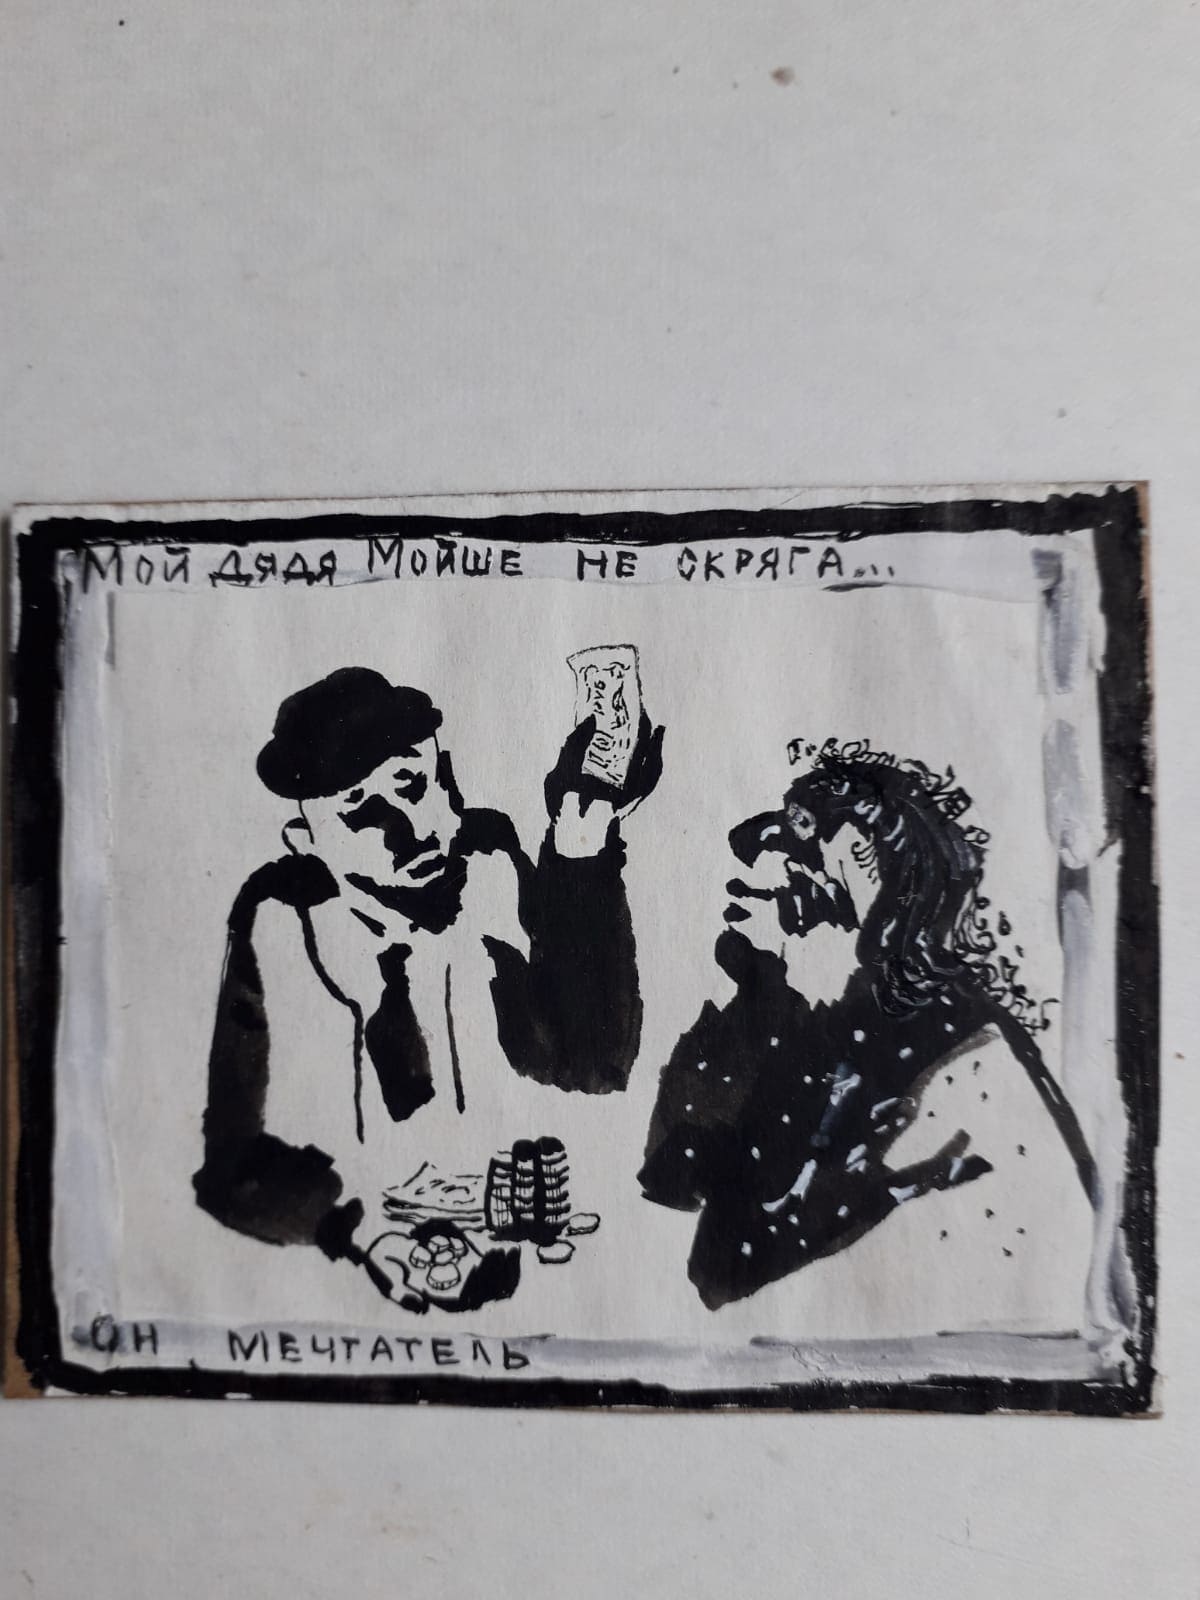 Мой дядя Мойше не скряга...
Он мечтатель